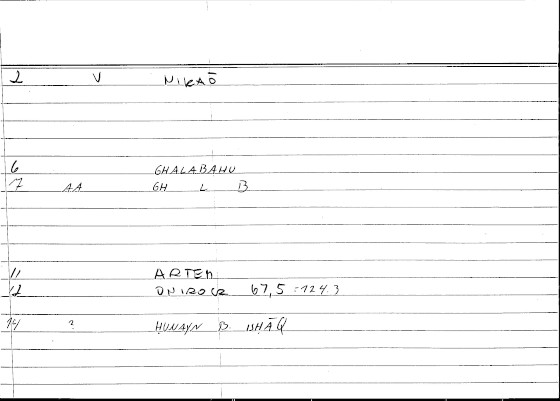 2 V NIKAÖ
6 GHALABAHU
7 AA GH L B
11 ARTEM
12 ONIROCR 67,5 = 124.3
14 ? ḤUNAYN B ISḤĀQ